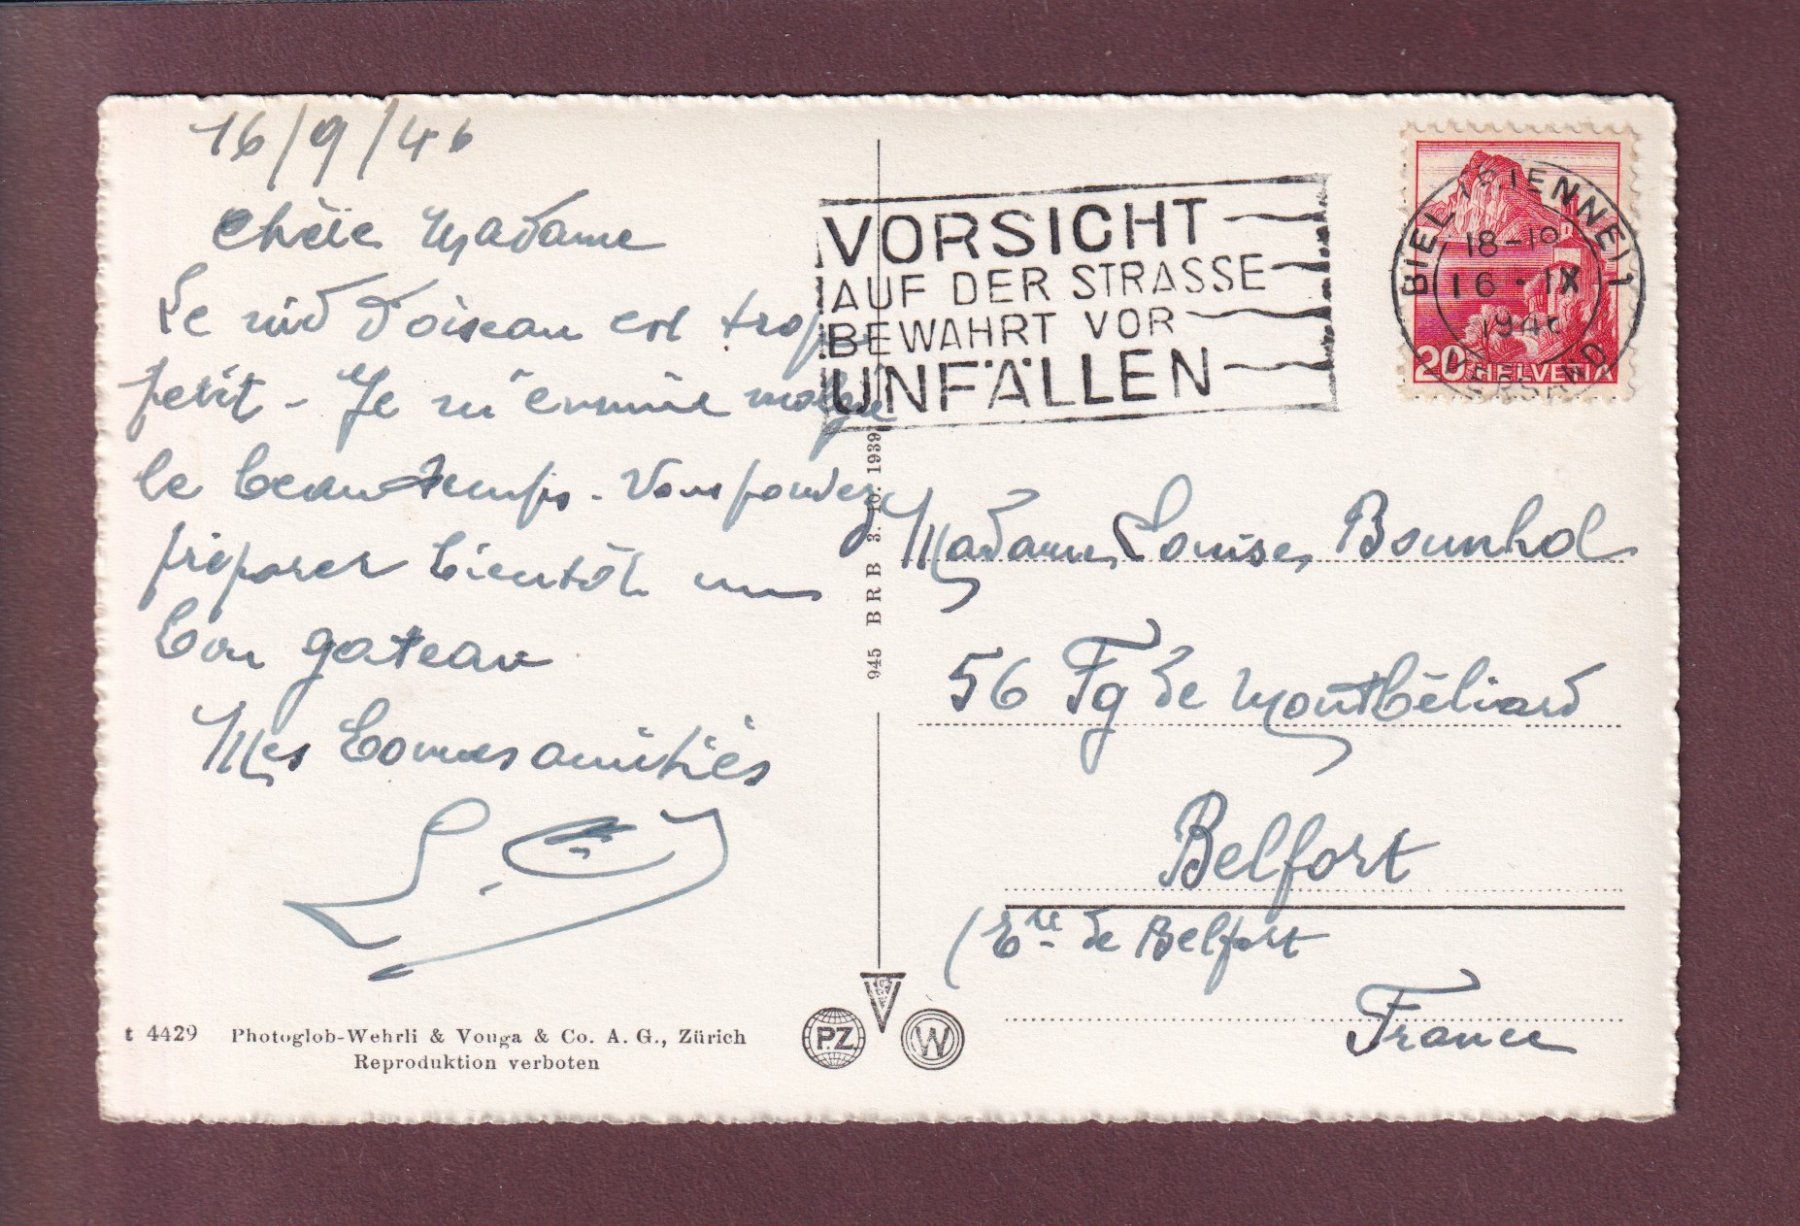 16/9/46
Chère Madame
Le nid d'oiseau est trop
petit - Je m'ennuie malgré
le beau temps. Vous pouvez
préparer bientôt un
bon gateau
Mes bonnes amitiés
t 4429 Photoglob-Wehrli & Vouga & Co. A. G., Zürich
Reproduktion verboten
945 BRB 3. 10. 1939
PZ
W
VORSICHT
AUF DER STRASSE
BEWAHRT VOR
UNFÄLLEN
BIEL (BIENNE) 1
18-19
16-IX
1946
20 HELVETIA
Madame Louise
56 Fg de Montbéliard
Belfort
(Erre de Belfort
France